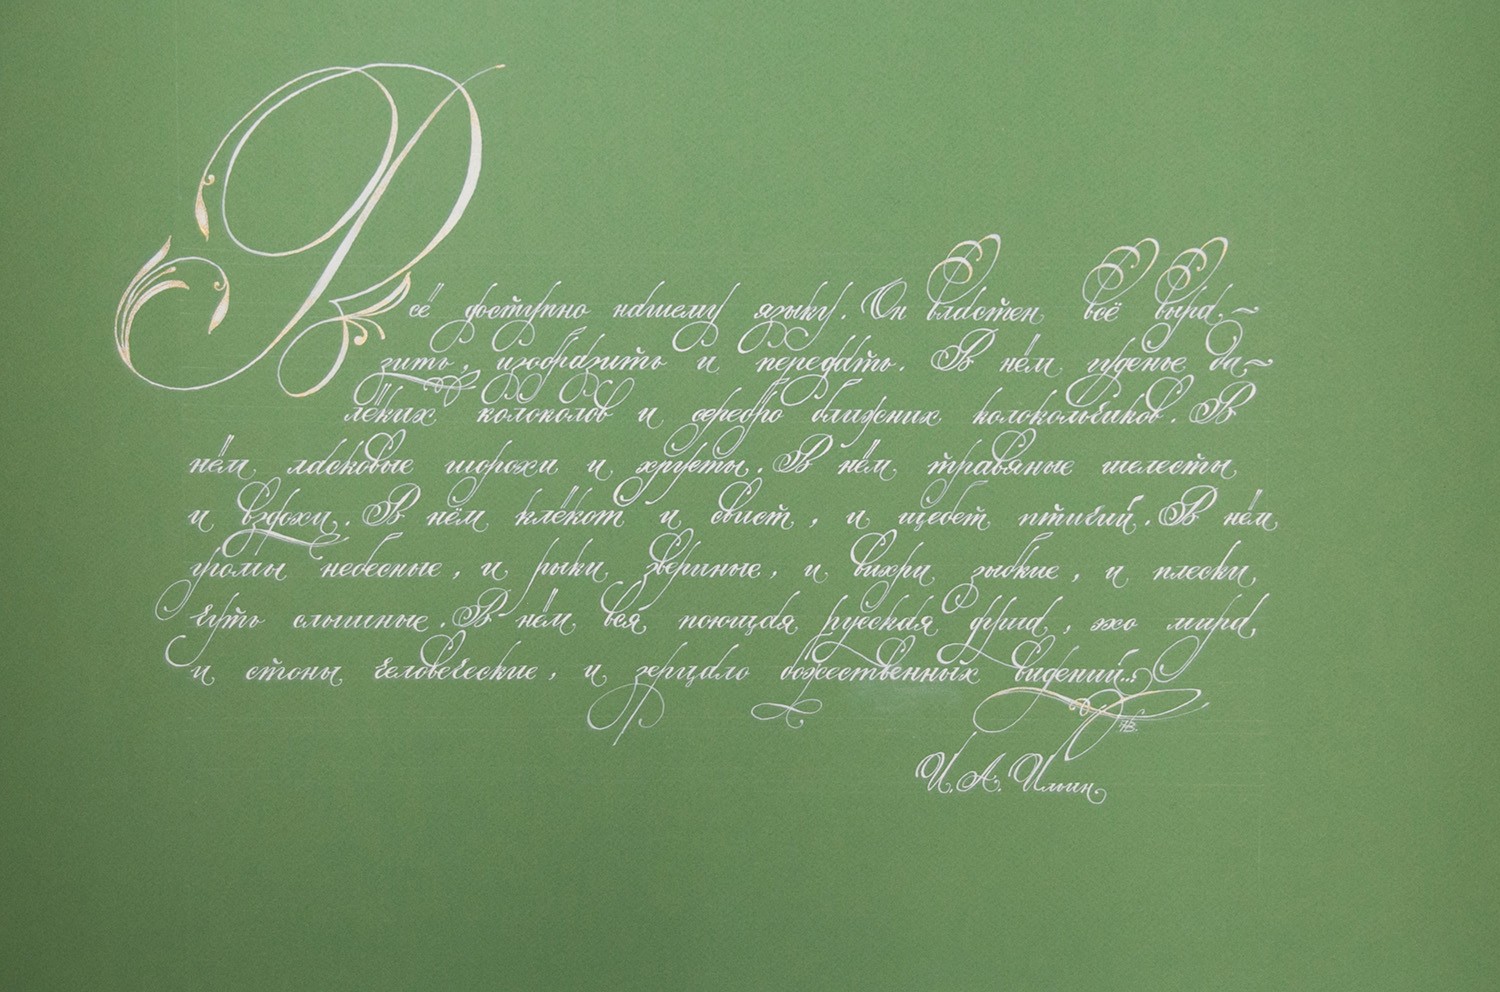 Всё доступно нашему языку. Он властен всё выра-
зить, изобразить и передать. В нём гуденье да-
лёких колоколов и серебро ближних колокольчиков. В
нём ласковые шорохи и хрусты. В нём травяные шелесты
и вздохи. В нём клёкот и свист, и щебет птичий. В нём
громы небесные, и рыки звериные, и вихри зыбкие, и плески
чуть слышные. В нём вся поющая русская душа, эхо мира,
и стоны человеческие, и зерцало божественных видений...
И.А. Ильин